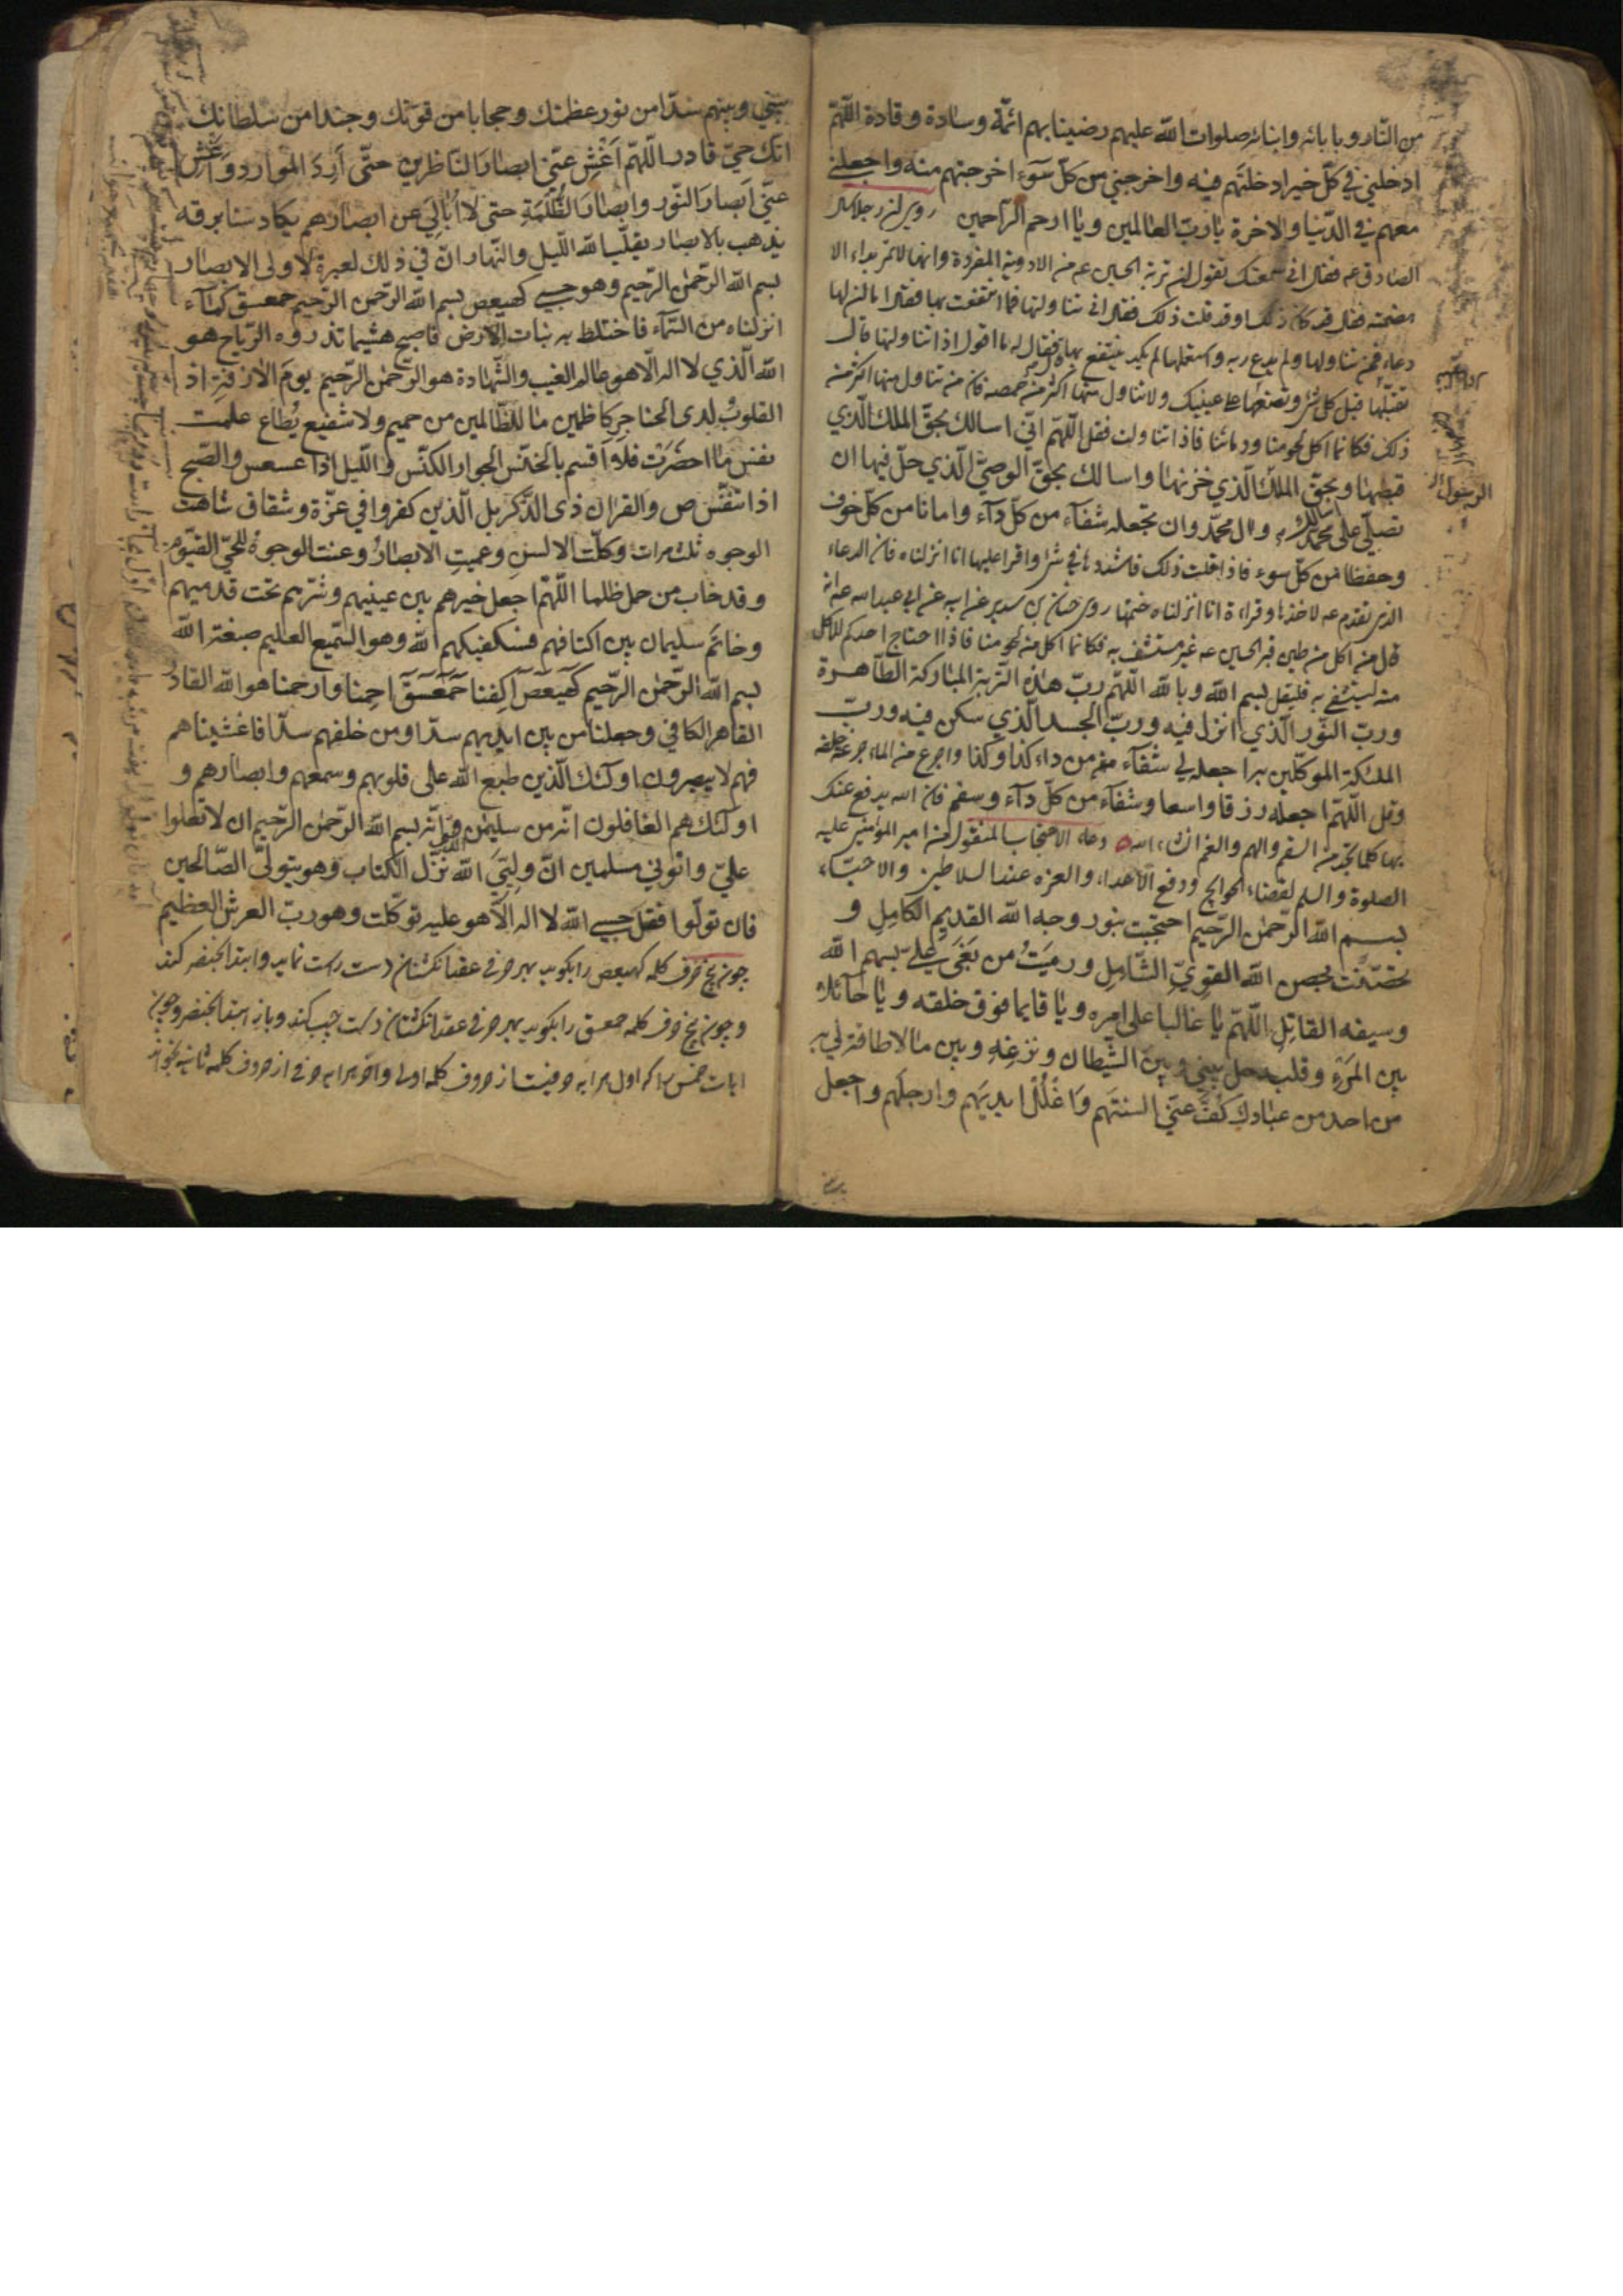 من النار وبابائه وابنائه صلوات الله عليهم رضينا بهم ائمّة وسادة وقادة اللّهمّ
ادخلني في كلّ خير ادخلتَهم فيه واخرجني من كلّ سوء اخرجتهم منه واجعلني
معهم في الدّنيا والاخرة يا ربّ العالمين ويا ارحم الرّاحمين روى ان رجلا سال
الصادق عه فقال اني سمعتك تقول ان تربة الحسين عه من الادوية المفردة وانها لا تمر بداء الا
هضمته فقال قد كان ذلك او قد قلت ذلك فقال اني تناولتها فما انتفعت بها فقال اما ان لها
دعاء فمن تناولها ولم يدع به واستعملها لم يكد ينتفع بها فقال له ما اقول اذا تناولتها قال
تقبّلها قبل كل شئ وتضعها على عينيك ولا تناول منها اكثر من حمصه فان من تناول منها اكثر من
ذلك فكانما اكل لحومنا ودمائنا فاذا تناولت فقل اللّهمّ انّي اسالك بحقّ الملك الّذي
قبضها وبحقّ الملك الّذي خزنها واسالك بحقّ الوصيّ الّذي حلّ فيها ان
تصلّي على محمّد وال محمّد وان تجعله شفآء من كلّ دآء وامانا من كلّ خوف
وحفظا من كلّ سوء فاذا قلت ذلك فاشددها في شئ واقرا عليها انا انزلناه فان الدعاء
الذي تقدم عه لاخذها وقراءة انا انزلناه ختمها روى حنان بن سدير عن ابيه عن ابي عبد الله عه انه
قال من اكل من طين قبر الحسين عه غير مستشف به فكانما اكل من لحومنا فاذا احتاج احدكم للاكل
منه ليستشفي به فليقل بسم الله وبالله اللّهمّ ربّ هذه التّربة المباركة الطّاهرة
وربّ النّور الّذي انزل فيه وربّ الجسد الّذي سكن فيه وربّ
الملئكة الموكّلين به اجعله لي شفآء من داء كذا وكذا واجرع من الماء جرعة خلفه
وقل اللّهمّ اجعله رزقا واسعا وشفآء من كلّ دآء وسقم فان الله يدفع عنك
بها كلما تجد من السقم والهم والغم ان شاء الله دعاء الاحتجاب المنقول عن امير المؤمنين عليه
الصلوة والسلم لقضاء الحوايج ودفع الاعداء والعزة عند السلاطين والاحبّاء
بسم الله الرّحمن الرّحيم احتجبت بنور وجه الله القديم الكامل و
تحصّنت بحصن الله القويّ الشّامل ورميتُ من بغى عليّ بسهم الله
وسيفه القاتل اللّهمّ يا غالبا على امره ويا قايما فوق خلقه ويا حآئلا
بين المرء وقلبه حل بيني وبين الشّيطان ونزغه وبين ما لا طاقة لي به
من احد من عبادك كفّ عنّي السنتهم واغلل ايديهم وارجلهم واجعل
بيني وبينهم سدّا من نور عظمتك وحجابا من قوّتك وجندا من سلطانك
انّك حيّ قادر اللّهمّ اَغْشِ عنّي ابصار النّاظرين حتّى أرد الموارد واغش
عنّي ابصار النّور وابصار الظّلمة حتى لا اُبالي عن ابصارهم يكاد سنا برقه
يذهب بالابصار يقلّب الله اللّيل والنّهار انّ في ذلك لعبرة لاولى الابصار
بسم الله الرّحمن الرّحيم وهو حسبي كهيعص بسم الله الرّحمن الرّحيم حمعسق كمآء
انزلناه من السّمآء فاختلط به نبات الارض فاصبح هشيما تذروه الرّياح هو
الله الّذي لا اله الّا هو عالم الغيب والشّهادة هو الرّحمن الرّحيم يوم الازفة اذ
القلوب لدى الحناجر كاظمين ما للظّالمين من حميم ولا شفيع يُطاع علمت
نفس ما احضرت فلا اقسم بالخنّس الجوار الكنّس واللّيل اذا عسعس والصّبح
اذا تنفّس ص والقران ذى الذّكر بل الّذين كفروا في عزّة وشقاق شاهت
الوجوه ثلث مرات وكلّت الالسن وعميت الابصار وعنت الوجوه للحيّ القيّوم
وقد خاب من حمل ظلما اللّهمّ اجعل خيرهم بين عينيهم وشرّهم تحت قدميهم
وخاتم سليمان بين اكتافهم فسيكفيكهم الله وهو السّميع العليم صبغة الله
بسم الله الرّحمن الرّحيم كهيعص اكفنا حمعسق احمنا وارحمنا هو الله القادر
القاهر الكافي وجعلنا من بين ايديهم سدّا ومن خلفهم سدّا فاغشيناهم
فهم لا يبصرون اولئك الّذين طبع الله على قلوبهم وسمعهم وابصارهم و
اولئك هم الغافلون انّه من سليمن وانّه بسم الله الرّحمن الرّحيم ان لا تعلوا
عليّ واتوني مسلمين انّ وليّي الله الّذي نزّل الكتاب وهو يتولّى الصّالحين
فان تولّوا فقل حسبي الله لا اله الّا هو عليه توكّلت وهو ربّ العرش العظيم
چون پنج حرف كلمه كهيعص را بگويد بهر حرفى عقد انگشتان دست راست نمايد وابتدا بخنصر كند
وچون پنج حرف كلمه حمعسق را بگويد بهر حرفى عقد انگشتان دست چپ كند وباز ابتدا بخنصر وچون
ايات خمس را كه اول هر ايه حرفيست از حروف كلمه اولى واخر هر ايه حرفى از حروف كلمه ثانيه بخواند